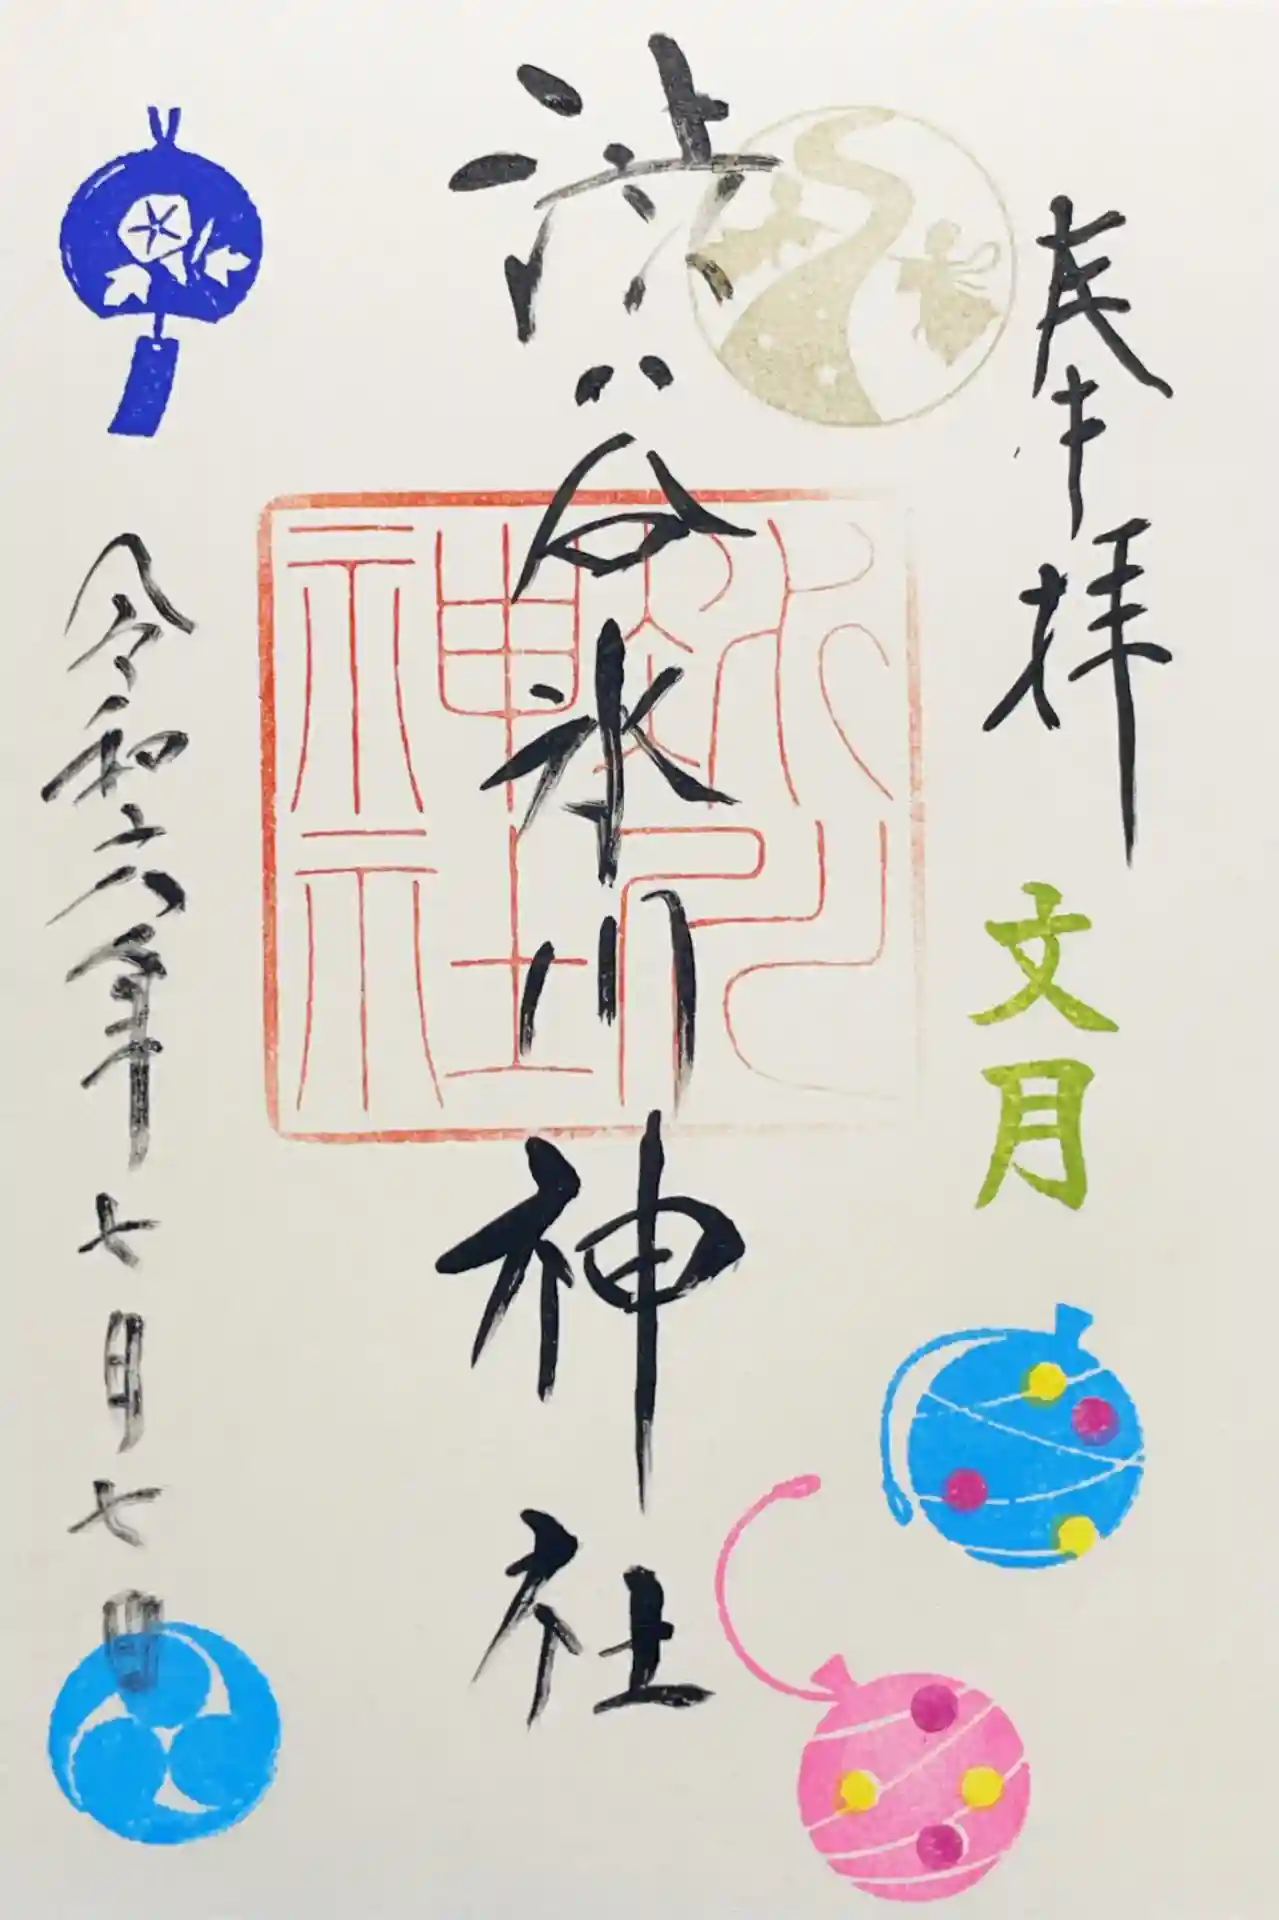 奉拝
文月
渋谷氷川神社
氷川神社
令和六年七月七日